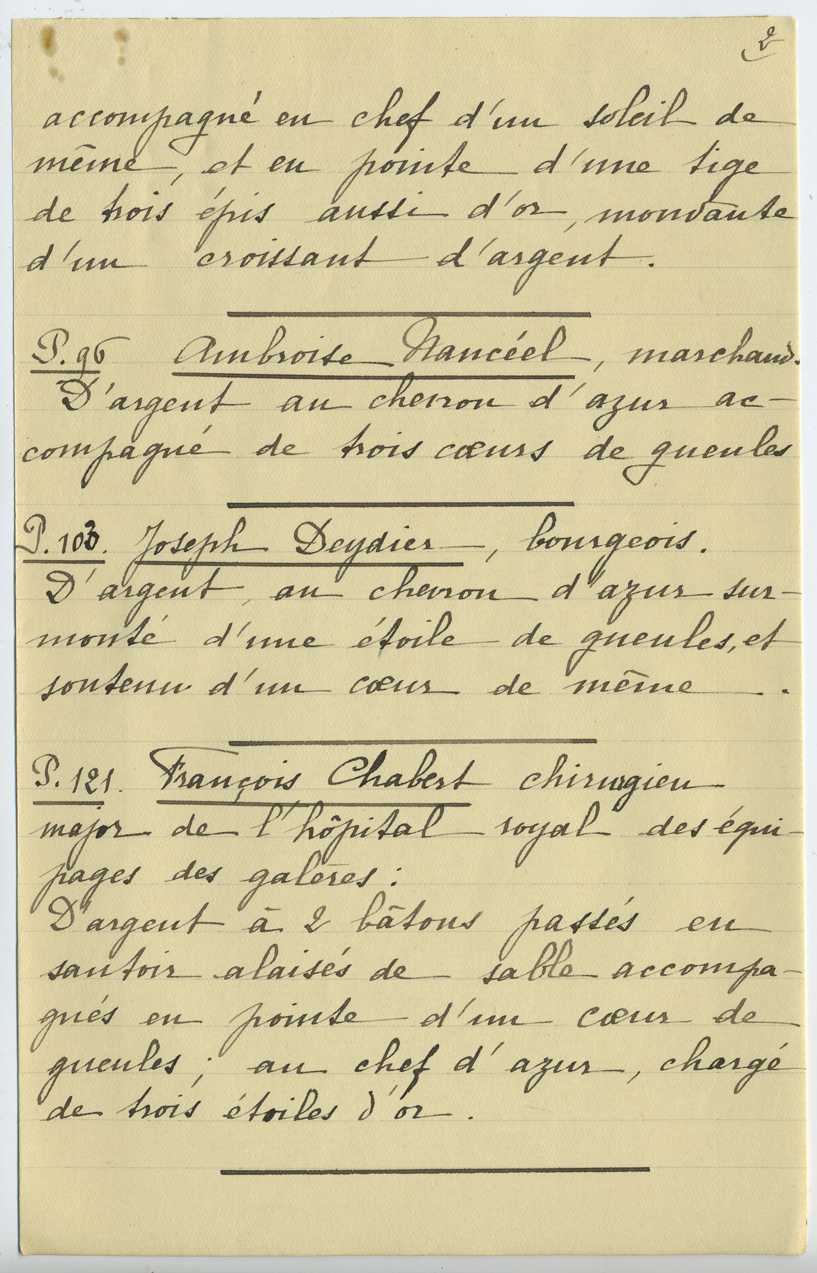 2
accompagné en chef d'un soleil de
même, et en pointe d'une tige
de trois épis aussi d'or, mouvante
d'un croissant d'argent.
P. 96 Ambroise Nancéel, marchand.
D'argent au chevron d'azur ac-
compagné de trois cœurs de gueules
P. 103. Joseph Deydier, bourgeois.
D'argent, au chevron d'azur sur-
monté d'une étoile de gueules, et
soutenu d'un cœur de même.
P. 121. François Chabert chirurgien
major de l'hôpital royal des équi-
pages des galères :
D'argent à 2 bâtons passés en
sautoir alaisés de sable accompa-
gnés en pointe d'un cœur de
gueules ; au chef d'azur, chargé
de trois étoiles d'or.